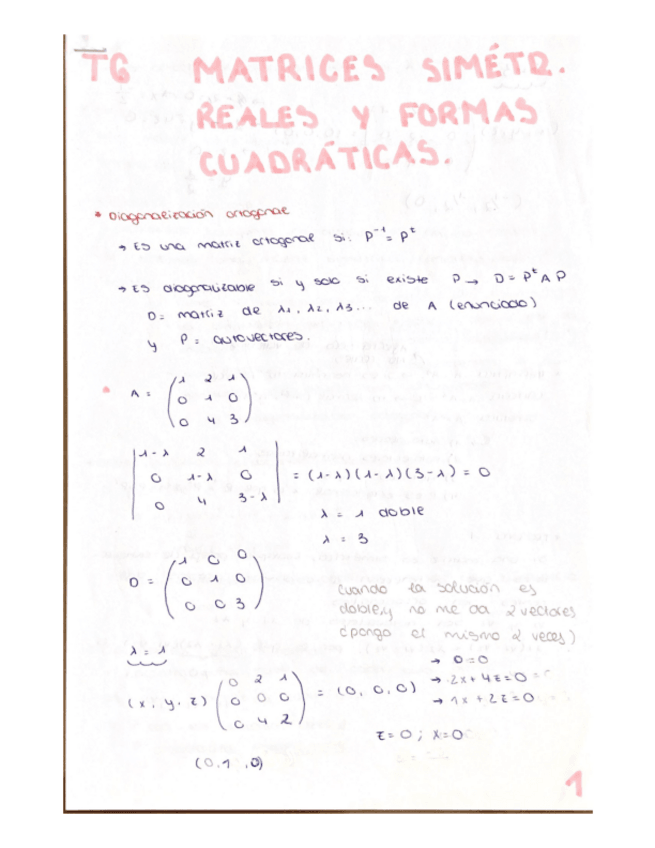 T6 MATRICES SIMÉTR.
REALES Y FORMAS
CUADRÁTICAS.
* Diagonalización ortogonal
→ ES una matriz ortogonal si: P⁻¹ = Pᵗ
→ ES diagonalizable si y solo si existe P → D = Pᵗ A P
D = matriz de λ1, λ2, λ3... de A (enunciado)
y P = autovectores.
* A = (1 2 1
0 1 0
0 4 3)
|1-λ 2 1
0 1-λ 0
0 4 3-λ| = (1-λ)(1-λ)(3-λ) = 0
λ = 1 doble
λ = 3
D = (1 0 0
0 1 0
0 0 3)
cuando la solución es
doble, y no me da 2 vectores
(pongo el mismo 2 veces)
λ = 1
(x, y, z) (0 2 1
0 0 0
0 4 2) = (0, 0, 0)
→ 0=0
→ 2x + 4z = 0
→ 1x + 2z = 0
z = 0 ; x = 0
(0, 1, 0)
1